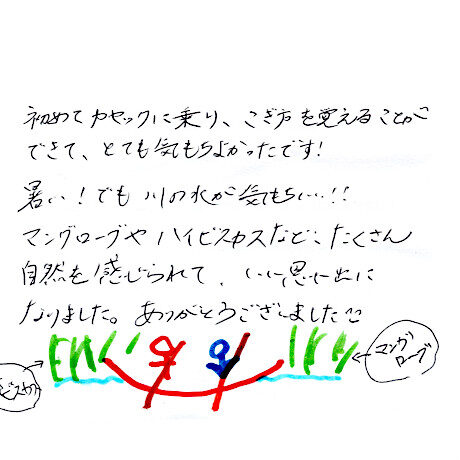 初めてカヤックに乗り、こぎ方を覚えることが
できて、とても気もちよかったです!
暑い!でも川の水が気もちいい!!
マングローブや ハイビスカスなど、たくさん
自然を感じられて、いい思い出に
なりました。ありがとうございました
マング
ローブ